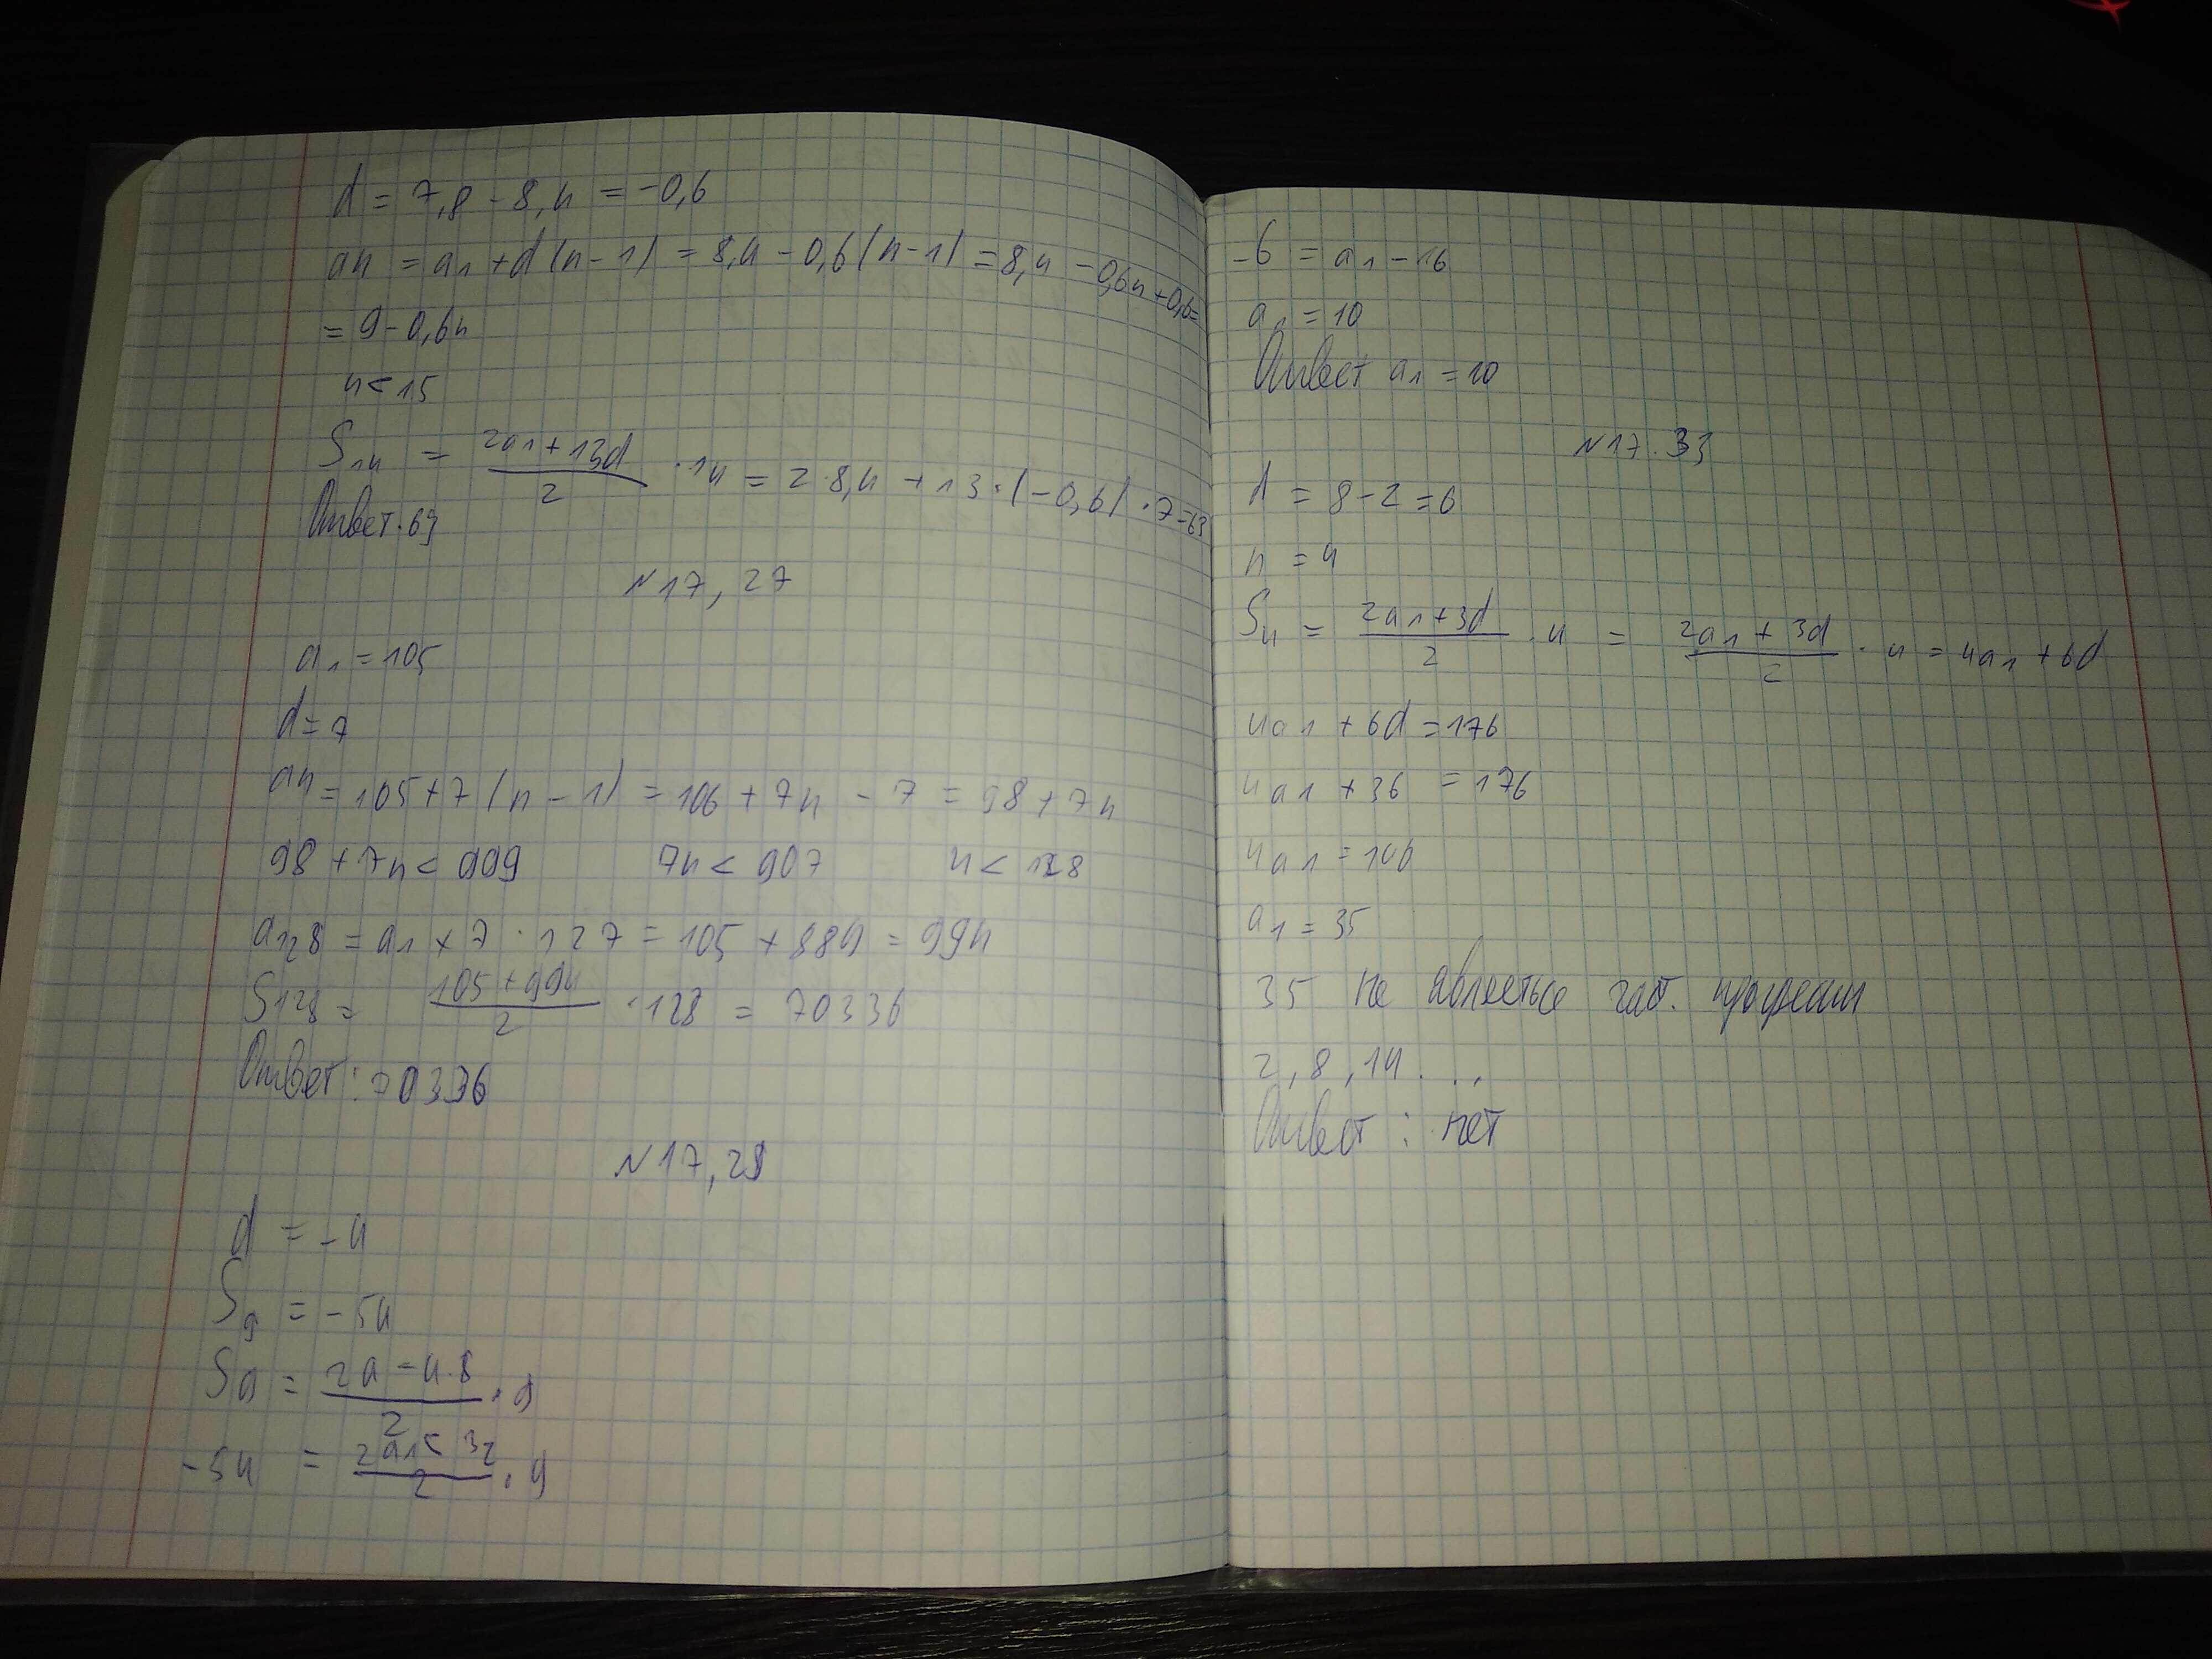 d = 7,8 - 8,4 = -0,6
an = a1 + d(n-1) = 8,4 - 0,6(n-1) = 8,4 - 0,6n + 0,6 =
= 9 - 0,6n
n < 15
S14 = (2a1 + 13d)/2 · 14 = 2·8,4 + 13·(-0,6)·7 = 63
Ответ· 63
N17,27
a1 = 105
d = 7
an = 105 + 7(n-1) = 106 + 7n - 7 = 98 + 7n
98 + 7n < 999 7n < 907 n < 128
a128 = a1 + 7 · 127 = 105 + 889 = 994
S128 = (105 + 994)/2 · 128 = 70336
Ответ: 70336
N17,28
d = -4
S9 = -54
S9 = (2a - 4·8)/2 · 9
-54 = (2a1 - 32)/2 · 9
-6 = a1 - 16
a1 = 10
Ответ a1 = 10
N17.33
d = 8 - 2 = 6
n = 4
S4 = (2a1 + 3d)/2 · 4 = (2a1 + 3d)/2 · 4 = 4a1 + 6d
4a1 + 6d = 176
4a1 + 36 = 176
4a1 = 140
a1 = 35
35 не являеться
2, 8, 14...
Ответ: нет